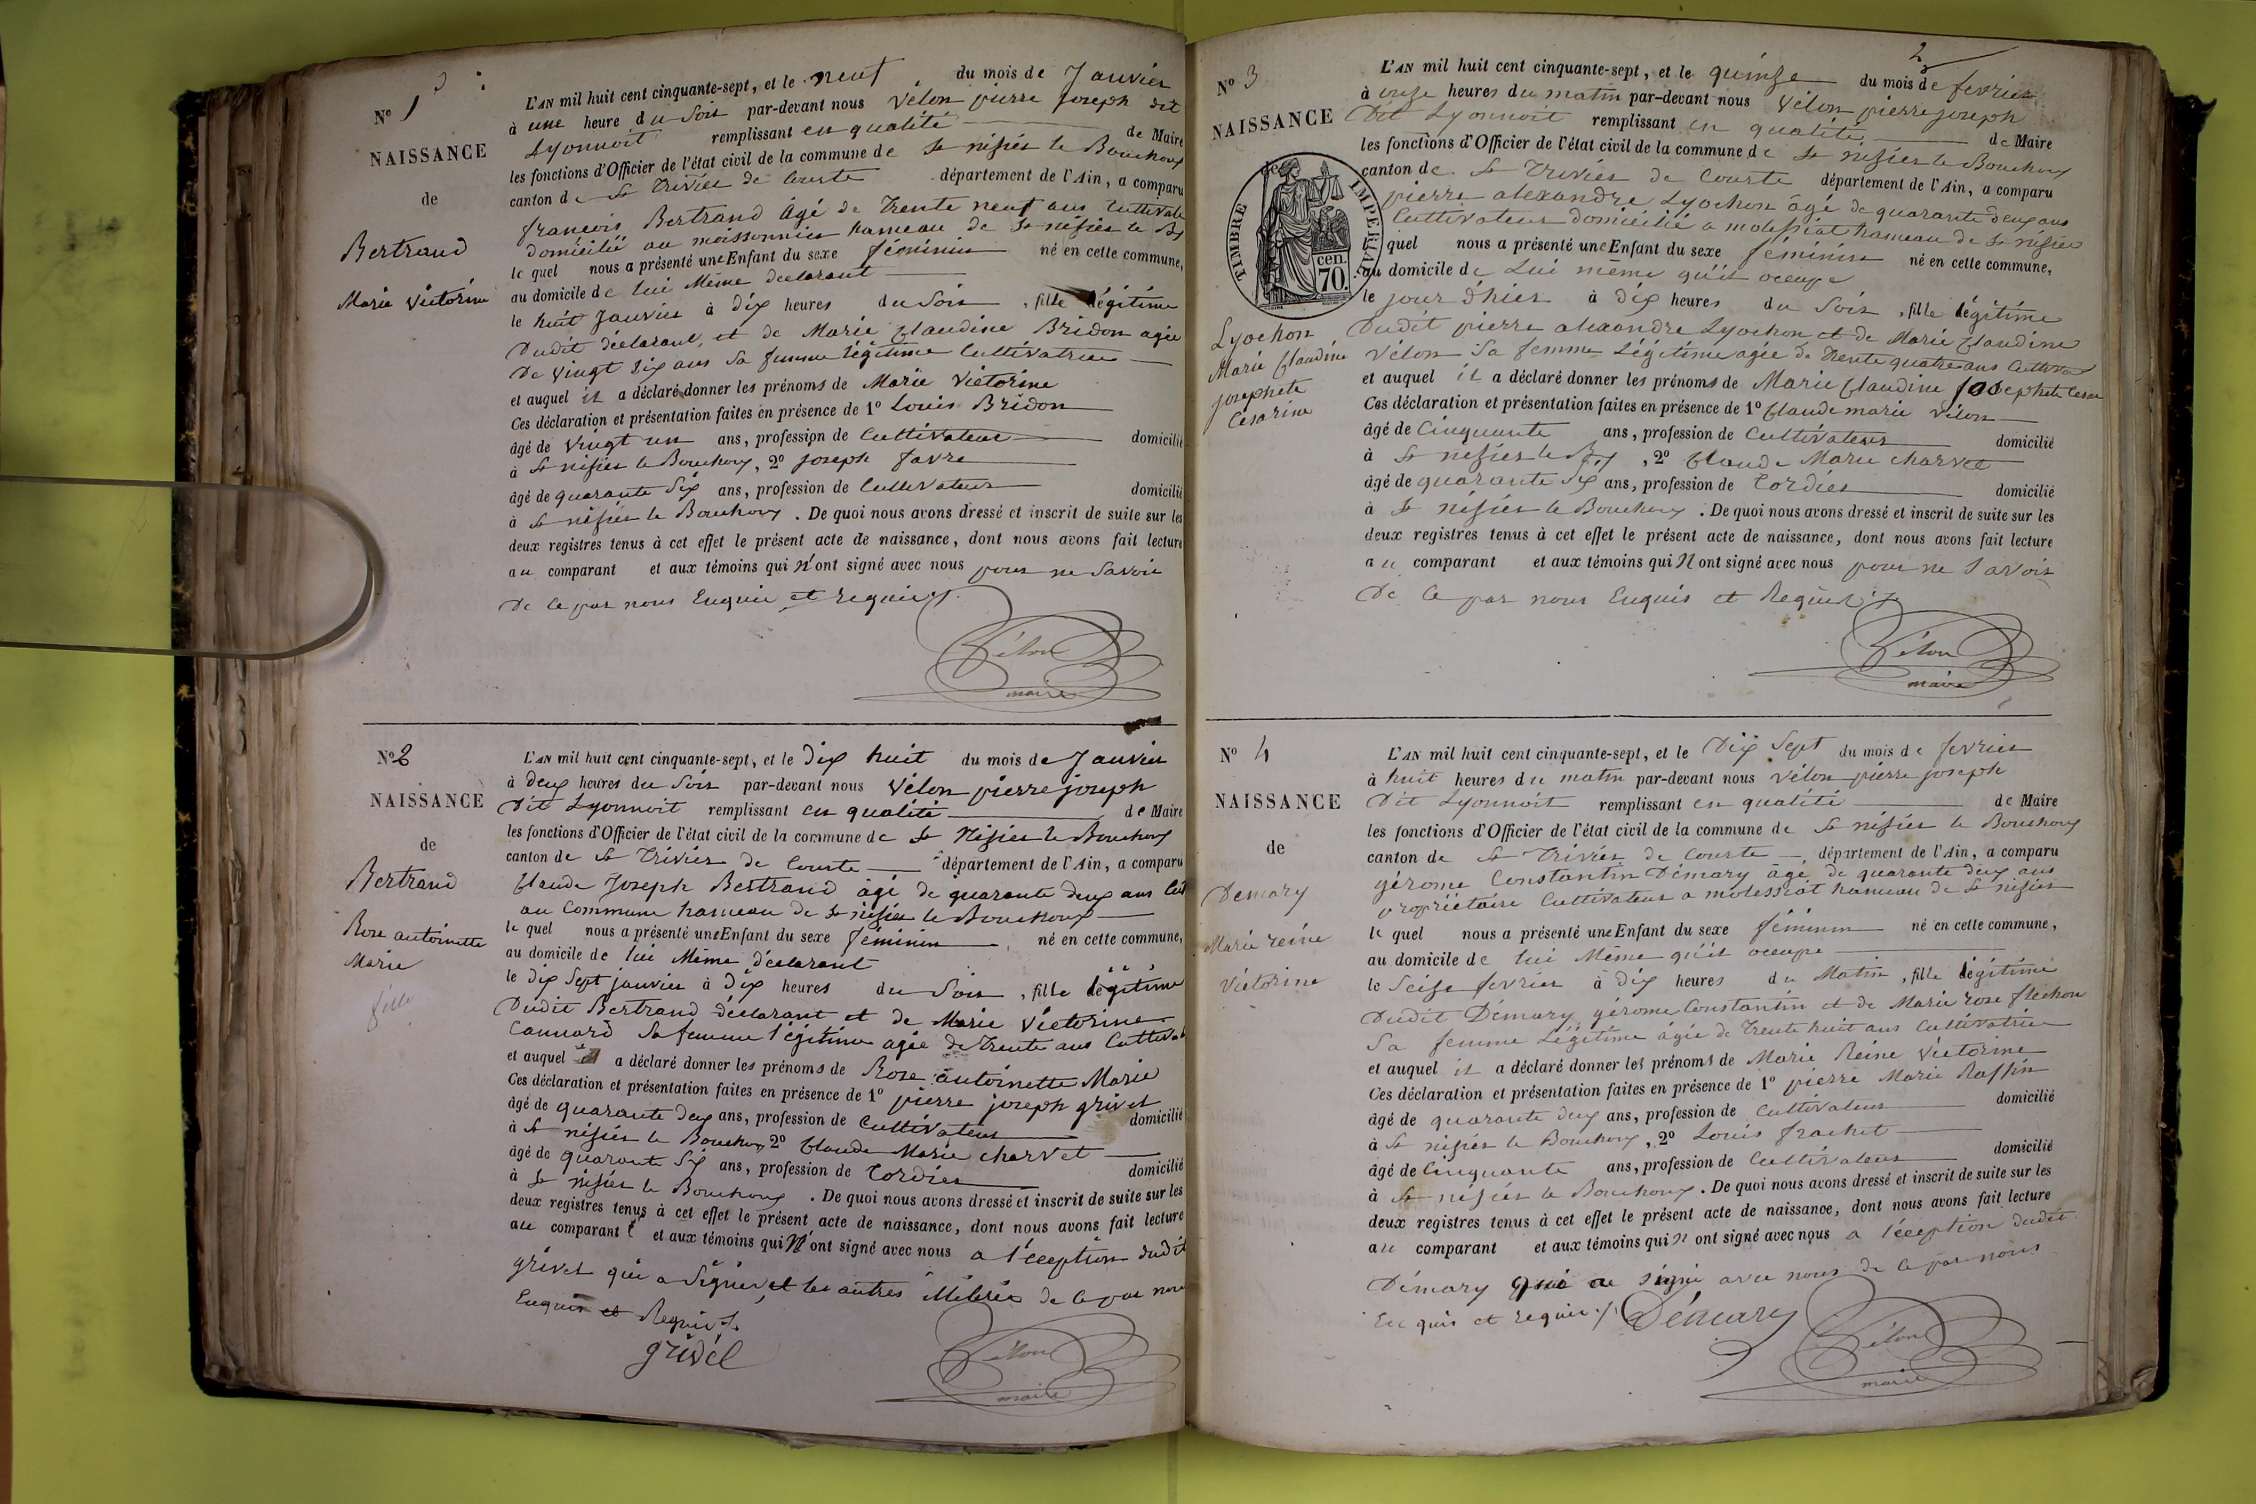 N° 1
NAISSANCE
de
Bertrand
Marie victorine
L'AN mil huit cent cinquante-sept, et le neuf du mois de Janvier
à une heure du Soir par-devant nous vélon pierre joseph dit
Lyonnoit remplissant en qualité de Maire
les fonctions d'Officier de l'état civil de la commune de St nisier le Bouchoux
canton de St Trivier de Courte département de l'Ain, a comparu
françois Bertrand âgé de Trente neuf ans Cultivate
domicilié au moissonnier hameau de St nisier le Bx
le quel nous a présenté une Enfant du sexe féminin né en cette commune,
au domicile de lui Même déclarant
le huit Janvier à dix heures du Soir, fille légitime
Dudit déclarant, et de Marie Claudine Bridon agée
De vingt six ans Sa femme légitime Cultivatrice
et auquel il a déclaré donner les prénoms de Marie Victorine
Ces déclaration et présentation faites en présence de 1° Louis Bridon
âgé de vingt un ans, profession de Cultivateur domicilié
à St nisier le Bouchoux, 2° joseph favre
âgé de quarante Six ans, profession de Cultivateur domicilié
à St nisier le Bouchoux. De quoi nous avons dressé et inscrit de suite sur les
deux registres tenus à cet effet le présent acte de naissance, dont nous avons fait lecture
au comparant et aux témoins qui n'ont signé avec nous pour ne Savoir
De ce par nous Enquis et requis ./.
Vélon
maire
N° 2
NAISSANCE
de
Bertrand
Rose antoinette
Marie
fille
L'AN mil huit cent cinquante-sept, et le Dix huit du mois de Janvier
à deux heures du Soir par-devant nous vélon pierre joseph
Dit Lyonnoit remplissant en qualité de Maire
les fonctions d'Officier de l'état civil de la commune de St Nisier le Bouchoux
canton de St Trivier de Courte département de l'Ain, a comparu
Claude Joseph Bertrand âgé de quarante deux ans Cult
au Commune hameau de St nisier le Bouchoux
le quel nous a présenté une Enfant du sexe féminin né en cette commune,
au domicile de lui Même déclarant
le dix Sept janvier à Dix heures du Soir, fille légitime
Dudit Bertrand déclarant et de Marie Victorine
Cannard Sa femme légitime agée de Trente ans Cultivat
et auquel il a déclaré donner les prénoms de Rose antoinette Marie
Ces déclaration et présentation faites en présence de 1° pierre joseph grivet
âgé de quarante deux ans, profession de Cultivateur domicilié
à St nisier le Bouchoux, 2° Claude Marie charvet
âgé de quarante Six ans, profession de Cordier domicilié
à St nisier le Bouchoux. De quoi nous avons dressé et inscrit de suite sur les
deux registres tenus à cet effet le présent acte de naissance, dont nous avons fait lecture
au comparant et aux témoins qui N'ont signé avec nous a l'éception dudit
grivet qui a Signer, et les autres illitérés de ce par nous
Enquis et Requis ./.
grivél
Vélon
maire
2
N° 3
NAISSANCE
de
TIMBRE IMPÉRIAL
70 cen.
Lyochon
Marie Claudine
josephete
Césarine
L'AN mil huit cent cinquante-sept, et le quinze du mois de fevrier
à onze heures du matin par-devant nous Vélon pierre joseph
Dit Lyonnoit remplissant en qualité de Maire
les fonctions d'Officier de l'état civil de la commune de St nisier le Bouchoux
canton de St Trivier de Courte département de l'Ain, a comparu
pierre alexandre Lyochon âgé de quarante deux ans
Cultivateur domicilié a molissiat hameau de St nisier
quel nous a présenté une Enfant du sexe féminin né en cette commune,
au domicile de Lui même qu'il occupe
le jour d'hier à dix heures du Soir, fille légitime
Dudit pierre alexandre Lyochon et de Marie Claudine
Vélon Sa femme Légitime agée de Trente quatre ans Cultiva
et auquel il a déclaré donner les prénoms de Marie Claudine Josephete Cesar
Ces déclaration et présentation faites en présence de 1° Claude marie vélon
âgé de Cinquante ans, profession de Cultivateur domicilié
à St nisier le Bx, 2° Claude Marie charvet
âgé de quarante Six ans, profession de Cordier domicilié
à St nisier le Bouchoux. De quoi nous avons dressé et inscrit de suite sur les
deux registres tenus à cet effet le présent acte de naissance, dont nous avons fait lecture
au comparant et aux témoins qui N'ont signé avec nous pour ne Savoir
De Ce par nous Enquis et Requis ./.
Vélon
maire
N° 4
NAISSANCE
de
Démary
Marie reine
Victorine
L'AN mil huit cent cinquante-sept, et le Dix Sept du mois de fevrier
à huit heures du matin par-devant nous vélon pierre joseph
Dit Lyonnoit remplissant en qualité de Maire
les fonctions d'Officier de l'état civil de la commune de St nisier le Bouchoux
canton de St Trivier de Courte département de l'Ain, a comparu
gérome Constantin Démary âgé de quarante deux ans
propriétaire Cultivateur a molissiat hameau de St nisier
le quel nous a présenté une Enfant du sexe féminin né en cette commune,
au domicile de lui Même qu'il occupe
le Seize fevrier à dix heures du Matin, fille légitime
Dudit Démary gérome Constantin et de Marie rose fléchon
Sa femme Légitime âgée de Trente huit ans Cultivatrice
et auquel il a déclaré donner les prénoms de Marie Reine Victorine
Ces déclaration et présentation faites en présence de 1° pierre Marie Raffin
âgé de quarante deux ans, profession de Cultivateur domicilié
à St nisier le Bouchoux, 2° Louis frachet
âgé de Cinquante ans, profession de Cultivateur domicilié
à St nisier le Bouchoux. De quoi nous avons dressé et inscrit de suite sur les
deux registres tenus à cet effet le présent acte de naissance, dont nous avons fait lecture
au comparant et aux témoins qui n'ont signé avec nous a l'éception dudit
Démary qui a signé avec nous de ce par nous
Enquis et requis ./. Démary
Vélon
maire